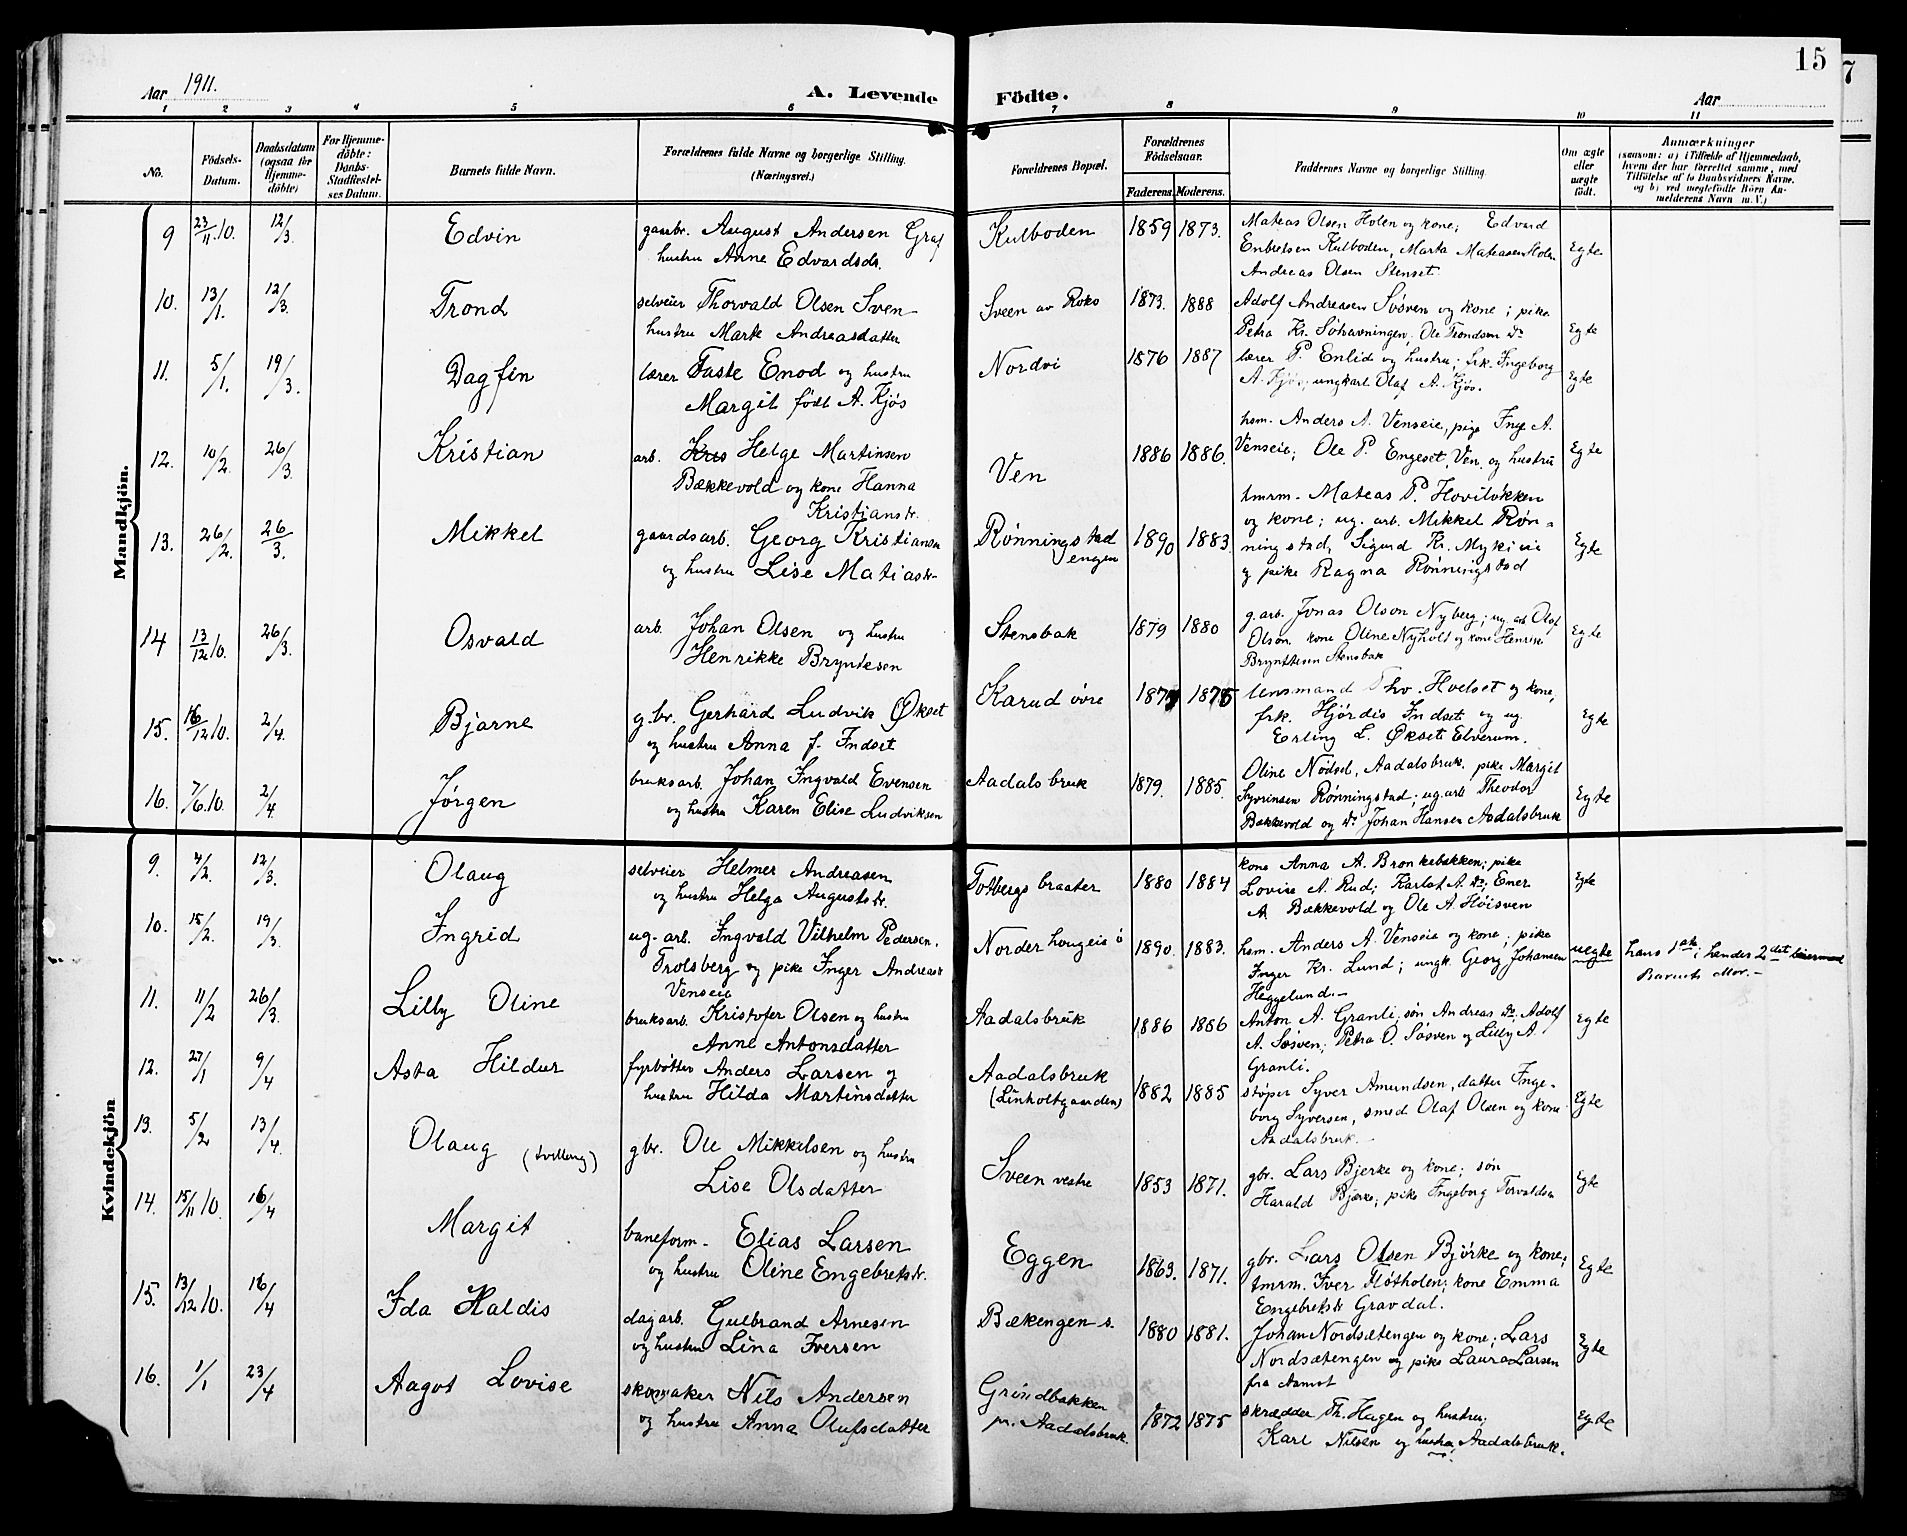 15
7
Aar 1911.
A. Levende Födte.
Aar
1 2 3 4 5 6 7 8 9 10 11
No.
Födsels-Datum.
Daabsdatum (ogsaa for Hjemmedöbte)
For Hjemmedöbte: Daabs-Stadfæstelses Datum.
Barnets fulde Navn.
Forældrenes fulde Navne og borgerlige Stilling. (Næringsvei.)
Forældrenes Bopæl.
Forældrenes Födselsaar.
Faderens. Moderens.
Faddernes Navne og borgerlige Stilling.
Om ægte eller uægte födt.
Anmærkninger
(saasom: a) i Tilfælde af Hjemmedaab, hvem der har forrettet samme, med Tilföielse af to Daabsvidners Navne, og b) ved uægtefödte Börn Anmelderens Navn m. V.)
Mandkjön.
9 23/11.10. 12/3. Edvin gaardbr. August Andersen Graf Kulboden 1859 1873. Mateas Olsen Holen og kone; Edvard
hustru Anne Edvardsdr. Enbretsen Kulboden, Marta Mateasen Holen Egte
Andreas Olsen Stenset.
10. 13/1. 12/3. Trond selveier Thorvald Olsen Sven Sveen av Roko 1873. 1888 Adolf Andreasen Søsven og kone; pike
hustru Marte Andreasdatter Petra Kr. Ole Trondsen do Egte
11. 5/1. 19/3. Dagfin lærer Taste Enod og hustru Nordvi 1876 1887 lærer P. Enlid og hustru; frk. Ingeborg
Margit født A. Kjøs A. Kjøs; ungkarl Olaf A. Kjøs. Egte
12. 10/2. 26/3. Kristian arb. Kris Helge Martinsen Ven 1886 1886. hsm. Anders A. Venseie, pige Inge A.
Bækkevold og kone Hanna Venseie; Ole P. Engeset, Ven. og hustru Egte
Kristiansdr.
13. 26/2. 26/3. Mikkel gaardsarb. Georg Kristiansen Rønningstad 1890 1883. tmrm. Mateas P. Hoviløkken
og hustru Lise Matiasdr engen og kone; ug. arb. Mikkel Røn-
ningstad, Sigurd Kr. Egte
og pike Ragna Rønningstad
14 13/12 10. 26/3. Osvald arb. Johan Olsen og hustru Stensbak 1879 1880 g.arb. Jonas Olson Nyberg; ug. arb Olaf
Henrikke Bryntesen Olson kone Oline Nyholt og kone Henrikke Egte
Brynthesen Stensbak
15. 16/12 10. 2/4. Bjarne g.br. Gerhard Ludvik Økset Karud øvre 1875 lensmand Thv. Hoelset og kone,
og hustru Anna f. Indset frk. Hjördis Indset og ug. Egte
Erling L. Økset Elverum.
16. 7/6.10. 2/4. Jørgen bruksarb. Johan Ingvald Evensen Aadalsbruk 1879. 1885. Oline Nødsel, Aadalsbruk. pike Margit
og hustru Karen Elise Ludviksen Syvrinsen Rønningstad; ug.arb. Theodor Egte
Bækkevold og do Johan Hansen Aadalsbruk
Kvindekjön
9. 4/2. 12/3. Olaug selveier Helmer Andreasen Totbergsbraaten 1880 1884 kone Anna A. Bronkebakken; pike
og hustru Helga Augustsdr. Lovise A. Rud; Karlot A. do; Ener Egte
A. Bækkevold og Ole A. Høisven
10. 15/2. 19/3. Ingrid ug. arb. Ingvald Vilhelm Pedersen, Norder Haugeie ö 1890. 1883. hsm. Anders A. Venseie og kone; pike
Trolsberg og pike Inger Andreasdr Inger Kr. Lund; ungk. Georg Johansen uegte hans 1ste; hendes 2det leiermaal
Venseie Heggelund.- Barnets Mor.-
11. 11/2 26/3. Lilly Oline bruksarb. Kristofer Olsen og hustru Aadalsbruk 1886 1886 Anton A. Granli, søn Andreas do; Adolf Egte
Anne Antonsdatter A. Søsven; Petra O. Søsven og Lilly A.
Granli.
12. 27/1 9/4 Asta Hildur fyrbøtter Anders Larsen og Aadalsbruk 1882 1885 støper Syver Amundsen, datter Inge-
hustru Hilda Martinsdatter (Linholtgaarden) borg Syversen, smed Olaf Olsen og kone Egte
Aadalsbruk.-
13. 5/2 13/4. Olaug (tvilling) gbr. Ole Mikkelsen og hustru Sveen vestre 1853 1871. gbr. Lars Bjerke og kone; søn
Lise Olsdatter Harald Bjerke; pike Ingeborg Torvaldsen Egte
14. 15/11 10. 16/4 Margit baneform. Elias Larsen Eggen 1863. 1871. gbr. Lars Olsen Björke og kone;
og hustru Oline Engebretsdr. tmrm. Iver Fløtholen; kone Emma Egte
Engebretsdr Gravdal.
15. 13/12 10. 16/4 Ida Haldis dagarb. Gulbrand Arnesen Bækengen s. 1880 1881. Johan Nordsætengen og kone; Lars
og hustru Lina Iversen Nordsætengen og pike Laura Larsen Egte
fra Aamot
16. 1/1 23/4 Aagot Lovise skomaker Nils Andersen Gröndbakken 1872 1875 skrædder Th. Hagen og hustru;
og hustru Anna Olufsdatter pr. Aadalsbruk. Karl Nilsen og hustru, Aadalsbruk. Egte